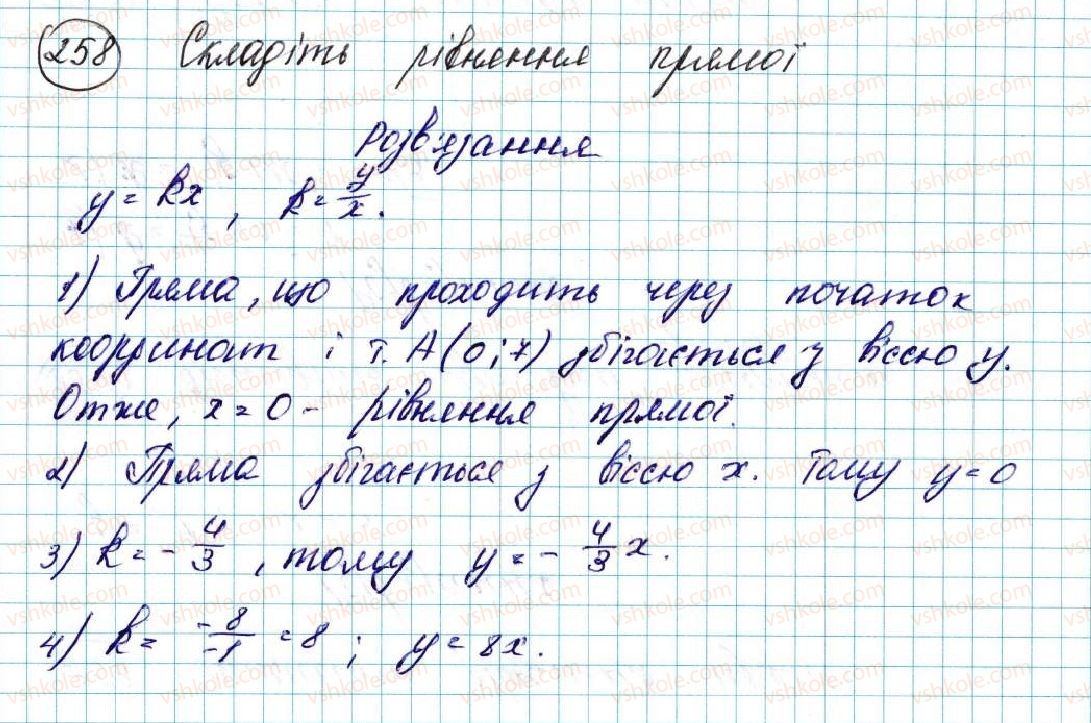 258 Складіть рівняння прямої
Розв'язання
y = kx, k = y/x.
1) Пряма, що проходить через початок
координат і т. A(0;7) збігається з віссю y.
Отже, x = 0 - рівняння прямої.
2) Пряма збігається з віссю x. Тому y = 0
3) k = - 4/3, тому y = - 4/3 x.
4) k = -8/-1 = 8; y = 8x.